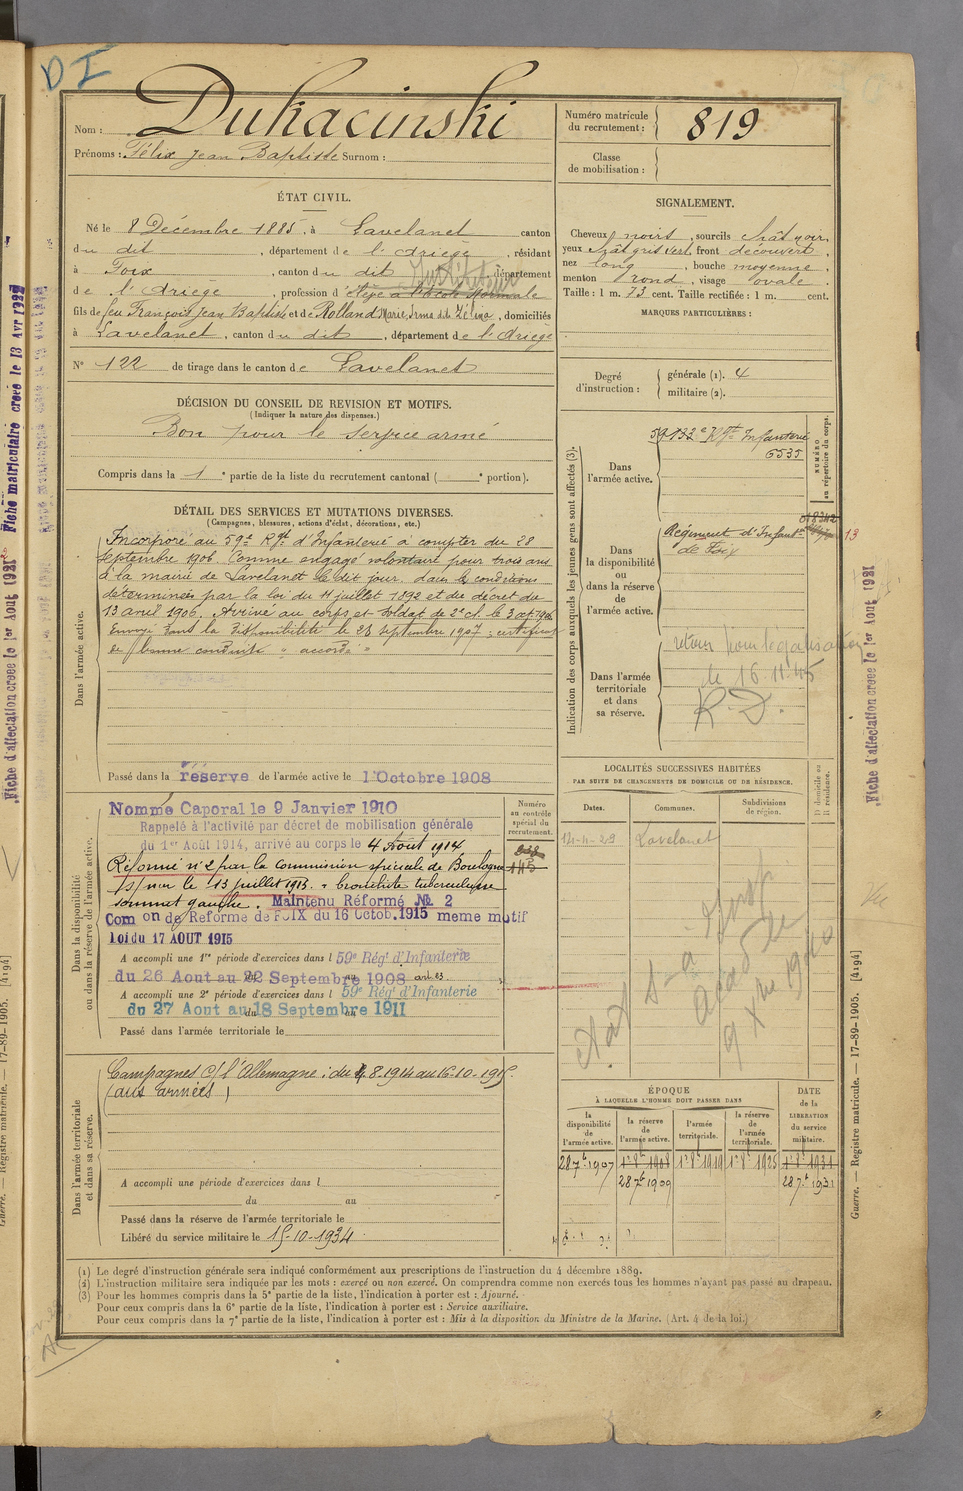 DI
Nom : Dukacinski
Prénoms : Félix Jean Baptiste Surnom :
Numéro matricule du recrutement : 819
Classe de mobilisation :
ÉTAT CIVIL.
Né le 8 Décembre 1885, à Lavelanet canton
du dit , département de l'Ariège , résidant
à Foix , canton du dit Instituteur département
de l'Ariège , profession d'élève à l'école normale
fils de feu François Jean Baptiste et de Rolland Marie, Irma dit Zélina , domiciliés
à Lavelanet , canton du dit , département de l'Ariège
N° 122 de tirage dans le canton de Lavelanet
DÉCISION DU CONSEIL DE REVISION ET MOTIFS.
(Indiquer la nature des dispenses.)
Bon pour le service armé
Compris dans la 1e partie de la liste du recrutement cantonal ( e portion).
SIGNALEMENT.
Cheveux noirs , sourcils chât noir,
yeux chât gris vert, front découvert ,
nez long , bouche moyenne ,
menton rond , visage ovale .
Taille : 1 m. 73 cent. Taille rectifiée : 1 m. cent.
MARQUES PARTICULIÈRES :
Degré d'instruction : générale (1). 4
militaire (2).
DÉTAIL DES SERVICES ET MUTATIONS DIVERSES.
(Campagnes, blessures, actions d'éclat, décorations, etc.)
Dans l'armée active.
Incorporé au 59e Rgt d'Infanterie à compter du 28
Septembre 1906. Comme engagé volontaire pour trois ans
à la mairie de Lavelanet le dit jour, dans les conditions
déterminées par la loi du 11 juillet 1892 et du décret du
13 avril 1906. Arrivé au corps et soldat de 2e cl. le 3 oct 1906
Envoyé dans la disponibilité le 28 septembre 1907 ; certificat
de bonne conduite " accordé "
Passé dans la réserve de l'armée active le 1 Octobre 1908
Dans la disponibilité ou dans la réserve de l'armée active.
Nommé Caporal le 9 Janvier 1910
Rappelé à l'activité par décret de mobilisation générale
du 1er Août 1914, arrivé au corps le 4 Août 1914
Réformé n° 2 par la Commission spéciale de Boulogne
s/mer le 13 juillet 1915. " bronchite tuberculeuse
sommet gauche. Maintenu Réformé № 2
Com on de Réforme de FOIX du 16 Octob. 1915 meme motif
loi du 17 AOUT 1915
A accompli une 1re période d'exercices dans l 59e Régt d'Infanterie
du 26 Aout au 22 Septembre 1908
A accompli une 2e période d'exercices dans l 59e Régt d'Infanterie
du 27 Aout au 18 Septembre 1911
Passé dans l'armée territoriale le
Numéro au contrôle spécial du recrutement.
145
Dans l'armée territoriale et dans sa réserve.
Campagnes c/ l'Allemagne : du 4-8-1914 au 16-10-1915.
(aux armées)
A accompli une période d'exercices dans l
du au
Passé dans la réserve de l'armée territoriale le
Libéré du service militaire le 15-10-1934
Indication des corps auxquels les jeunes gens sont affectés (3).
Dans l'armée active.
59 132e Rgt Infanterie
6535
NUMÉRO au répertoire du corps.
Dans la disponibilité ou dans la réserve de l'armée active.
Régiment d'Infant.
de Foix
13
Dans l'armée territoriale et dans sa réserve.
retour pour légalisation
le 16.11.45
R.D.
LOCALITÉS SUCCESSIVES HABITÉES
PAR SUITE DE CHANGEMENTS DE DOMICILE OU DE RÉSIDENCE.
Dates. Communes. Subdivisions de région. D domicile ou R résidence.
14-4-29 Lavelanet
Insp
Acad
1940
ÉPOQUE
À LAQUELLE L'HOMME DOIT PASSER DANS
la disponibilité de l'armée active. la réserve de l'armée active. l'armée territoriale. la réserve de l'armée territoriale. DATE de la LIBÉRATION du service militaire.
28 7b 1907 1er 8b 1908 1er 8b 1919 1er 8b 1925 1er 8b 1931
28 7b 1909 28 7b 1931
(1) Le degré d'instruction générale sera indiqué conformément aux prescriptions de l'instruction du 4 décembre 1889.
(2) L'instruction militaire sera indiquée par les mots : exercé ou non exercé. On comprendra comme non exercés tous les hommes n'ayant pas passé au drapeau.
(3) Pour les hommes compris dans la 5e partie de la liste, l'indication à porter est : Ajourné.
Pour ceux compris dans la 6e partie de la liste, l'indication à porter est : Service auxiliaire.
Pour ceux compris dans la 7e partie de la liste, l'indication à porter est : Mis à la disposition du Ministre de la Marine. (Art. 4 de la loi.)
Fiche d'affectation créée le 1er Aout 1921
Fiche matriculaire créée le 13 Avr 1922
Fiche d'affectation créée le 1er Aout 1921
Vu
Guerre. — Registre matricule. — 17-89-1905. [4194]
Guerre. — Registre matricule. — 17-89-1905. [4194]